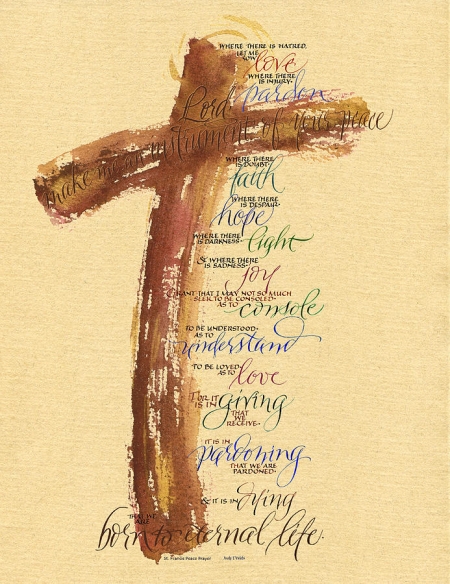 Lord
make me an instrument of your peace
WHERE THERE IS HATRED,
LET ME
SOW
love
WHERE THERE
IS INJURY·
pardon
WHERE THERE
IS DOUBT·
faith
WHERE THERE
IS DESPAIR·
hope
WHERE THERE
IS DARKNESS·
light
& WHERE THERE
IS SADNESS·
joy
GRANT THAT I MAY NOT SO MUCH
SEEK TO BE CONSOLED·
AS TO
console
TO BE UNDERSTOOD·
AS TO
understand
TO BE LOVED·
AS TO
love
FOR IT
IS IN
giving
THAT
WE
RECEIVE·
IT IS IN
pardoning
THAT WE ARE
PARDONED·
& IT IS IN
dying
THAT WE
ARE
born to eternal life·
St. Francis Peace Prayer